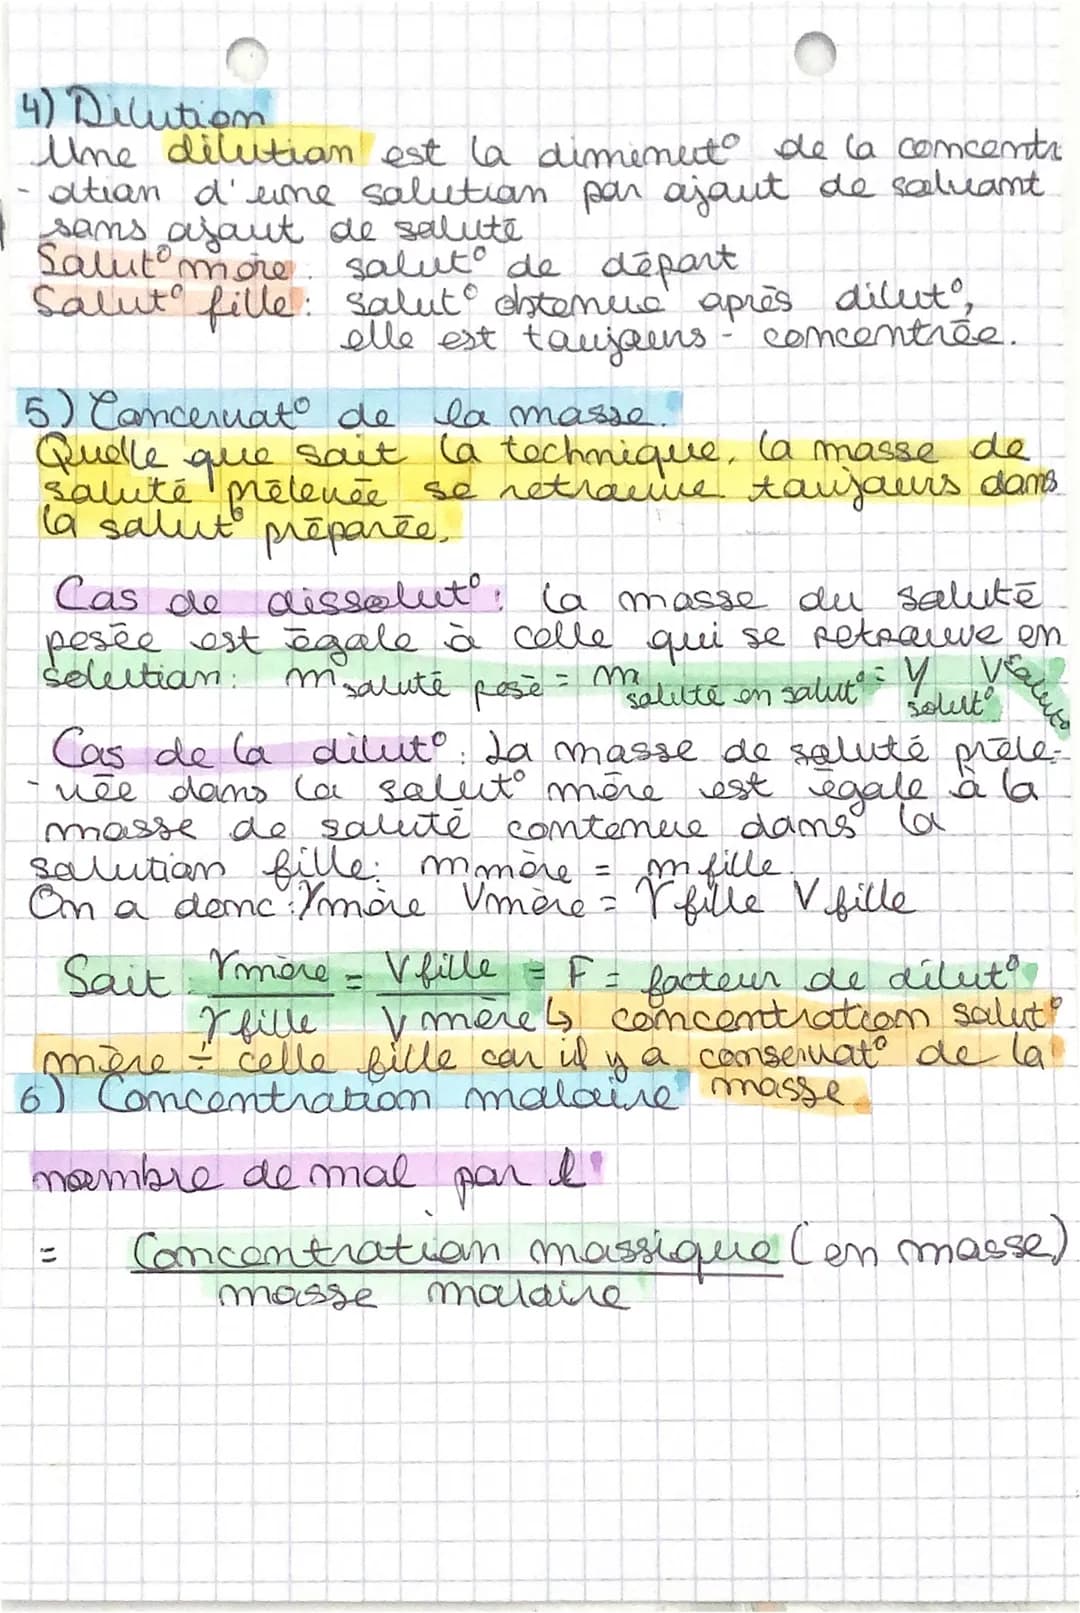 4) Dilution
Une dilution est la diminut° de la concentr
-ation d'une solution par ajout de solvant
sans ajout de soluté
Solut° mère : solut° de départ
Solut° fille : solut° obtenue après dilut°,
elle est toujours - concentrée.
5) Conservat° de la masse.
Quelle que soit la technique, la masse de
soluté prélevée se retrouve toujours dans
la solut° préparée.
Cas de dissolut° : la masse du soluté
pesée est égale à celle qui se retrouve en
solution : m soluté pesé = m soluté en solut° = γ solut° V solut°
Cas de la dilut° : La masse de soluté préle-
-vée dans la solut° mère est égale à la
masse de soluté contenue dans la
solution fille : m mère = m fille.
On a donc : γ mère V mère = γ fille V fille
Soit γ mère / γ fille = V fille / V mère = F = facteur de dilut°
↳ concentration solut°
mère ÷ celle fille car il y a conservat° de la
masse
6) Concentration molaire
nombre de mol par l
= Concentration massique (en masse)
masse molaire